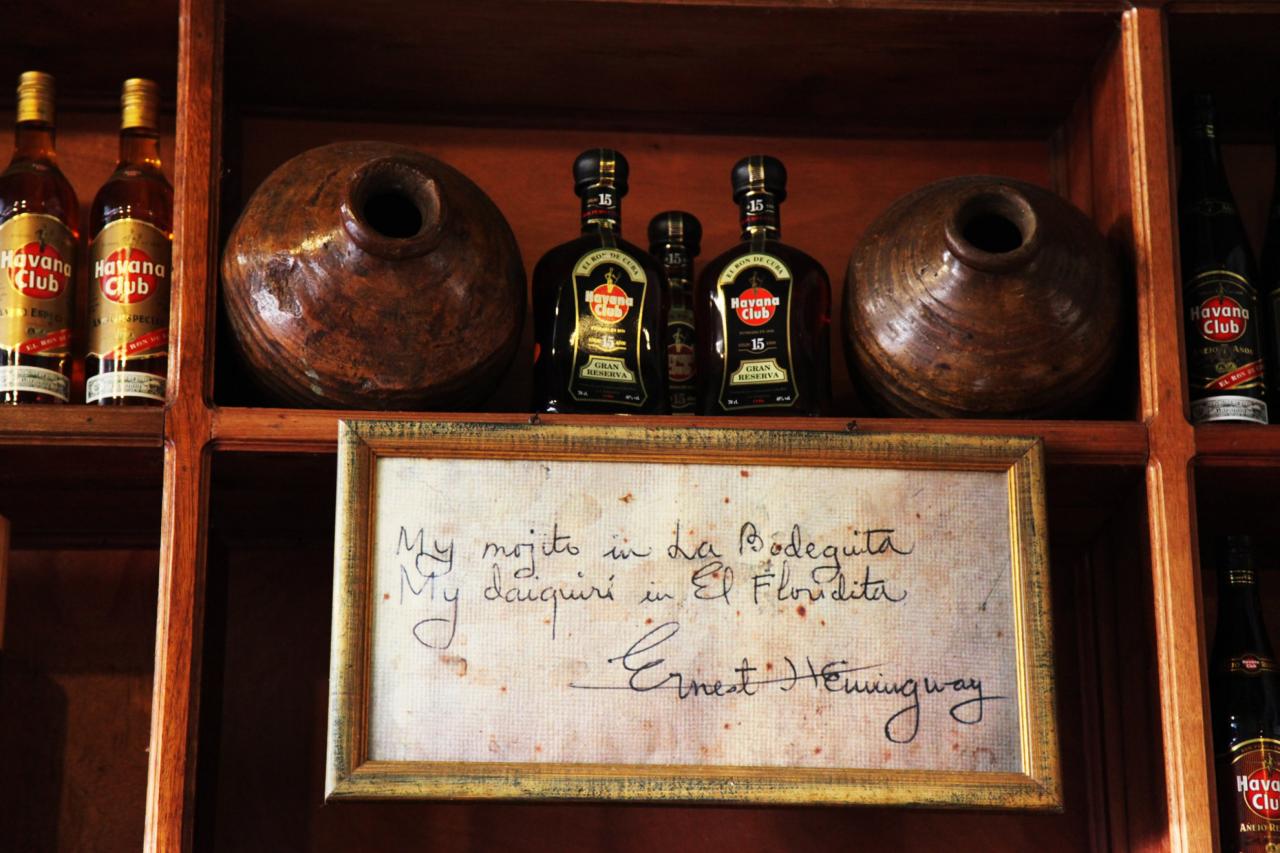 Havana
Club
AÑEJO ESPECIAL
EL RON DE
Havana
Club
AÑEJO ESPECIAL
EL RON DE
15
EL RON DE CUBA
Havana
Club
15
GRAN
RESERVA
15
15
EL RON DE CUBA
Havana
Club
AÑEJO 15 AÑOS
GRAN
RESERVA
Havana
Club
AÑEJO 7 AÑOS
EL RON DE
My mojito in La Bodeguita
My daiquirí in El Floridita
Ernest Hemingway
Havana
Club
AÑEJO RE